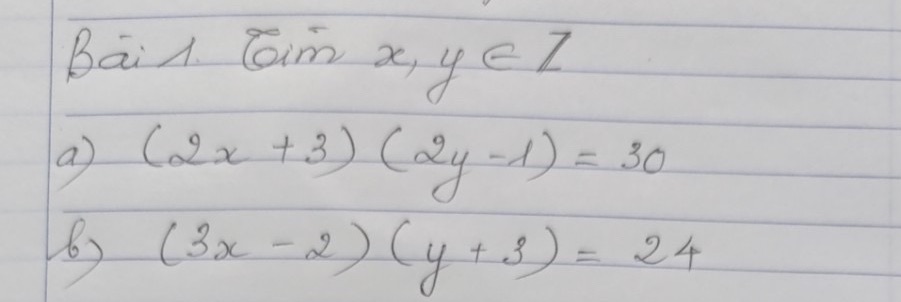 Bài 1. Tìm x, y ∈ Z
a) (2x + 3) (2y - 1) = 30
b) (3x - 2) (y + 3) = 24